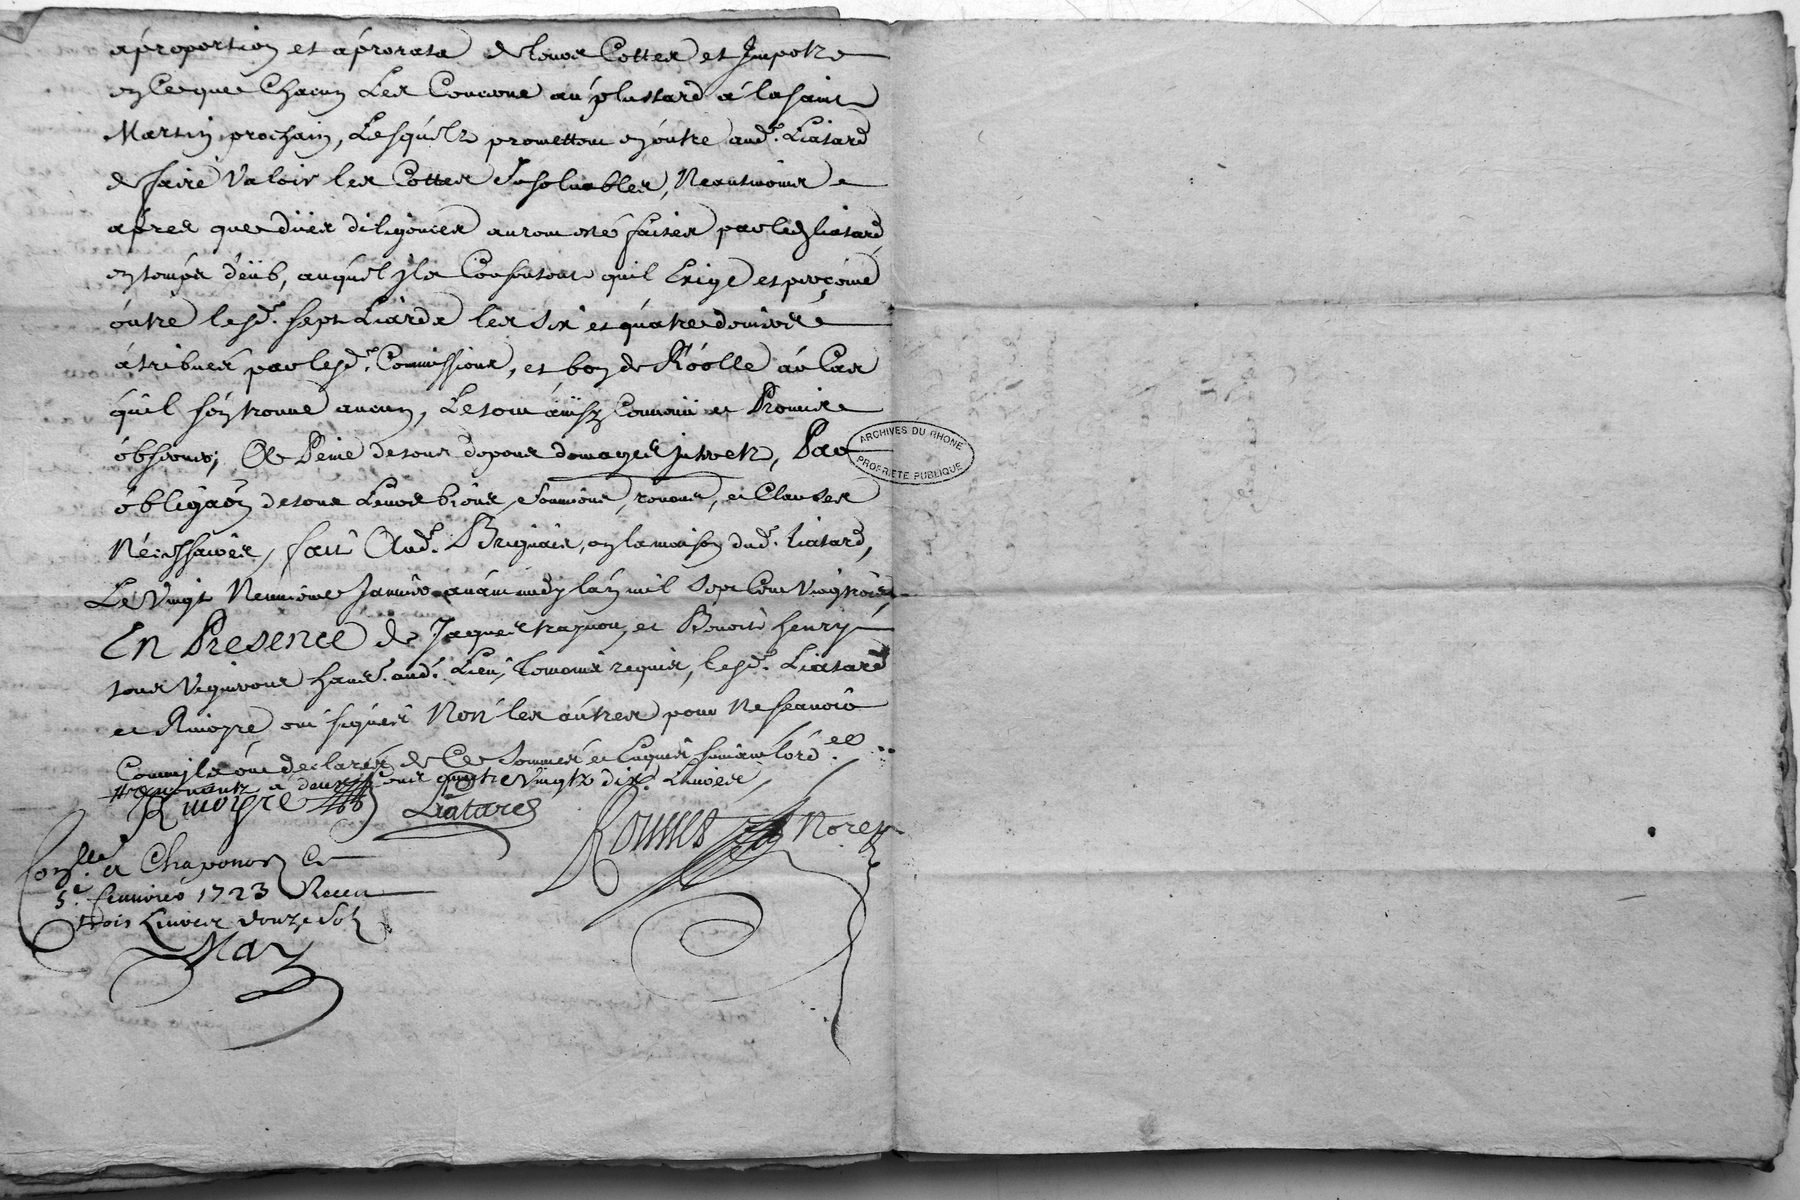 aproportion et aprorata de leurs Cottes et Impotz
en Ce que Chacun Les Concerne au plus tard a la saint
Martin prochain, Lesquelz promettent en outre aud. Liatard
de faire Valoir les Cottes Insoluables, Neantmoins
apres que dües diligences auront esté faites par led liatard
en temps deüb, auquel jls Consentent quil Exige et perçoive
outre lesd. sept Liards les six et quatre deniers
atribués par lesd. Commissions, et bon de Róolle au Cas
quil s'en trouve aucun, Le tout ainsy Convenü et Promis
observer, A Peine de tous depens domages jnteretz, Par
obligaon de tous Leurs biens, soumions, renons, et Clauses
Necessaires, fait Aud. Brignais, en la maison dud. liatard,
Le Vingt Neufvieme Janvier avant midy lan mil sept Cent Vingtrois,
En Presence de Jaques tragnon, et Benoist henry
tous Vignerons habs. aud. Lieu, temoins requis, lesd. Liatard
et Rivoyre ont signés Non les autres pour Ne sçavoir
Comm'ils ont declarés de Ce sommés et Enquis suivant lord.ce
a deux Cens quatre Vingtz dix Livres,
Rivoyre Liatard
Nore
Con.lle a Chaponost Ce
5e feuvrier 1723 Receu
trois Livres douze solz
ARCHIVES DU RHONE
PROPRIÉTÉ PUBLIQUE